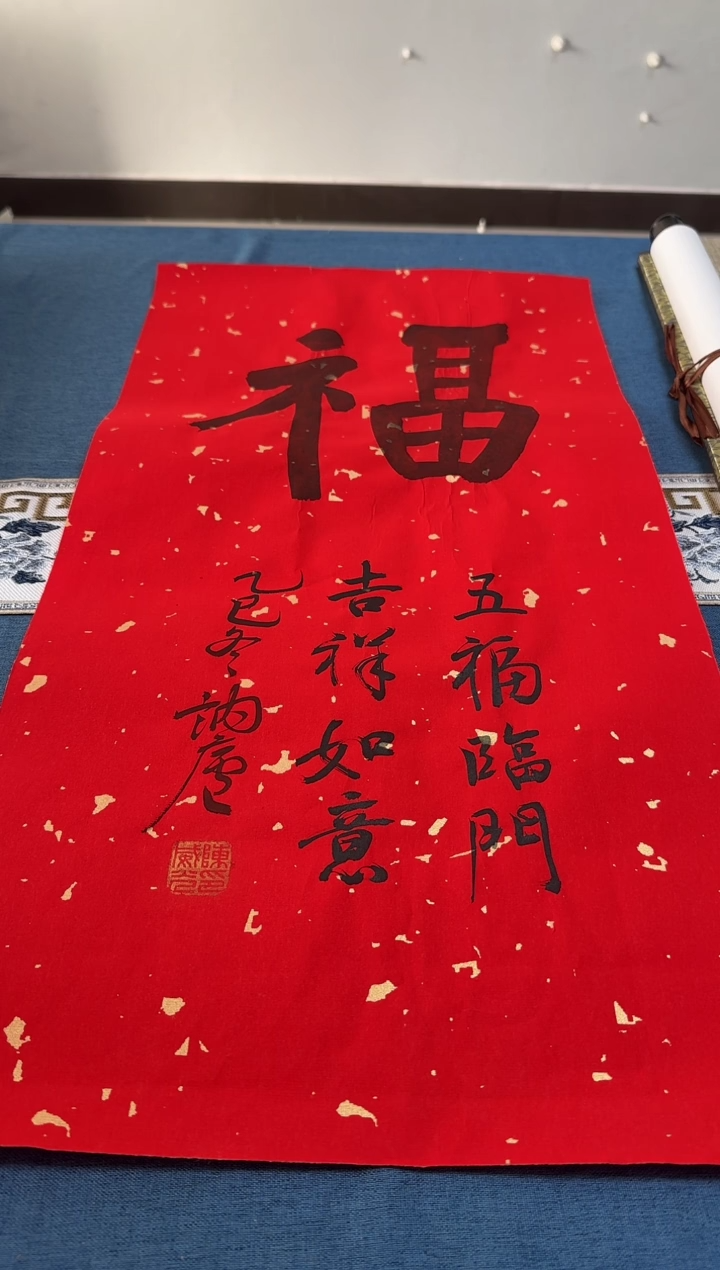 福
五福臨門
吉祥如意
乙巳冬訥廬